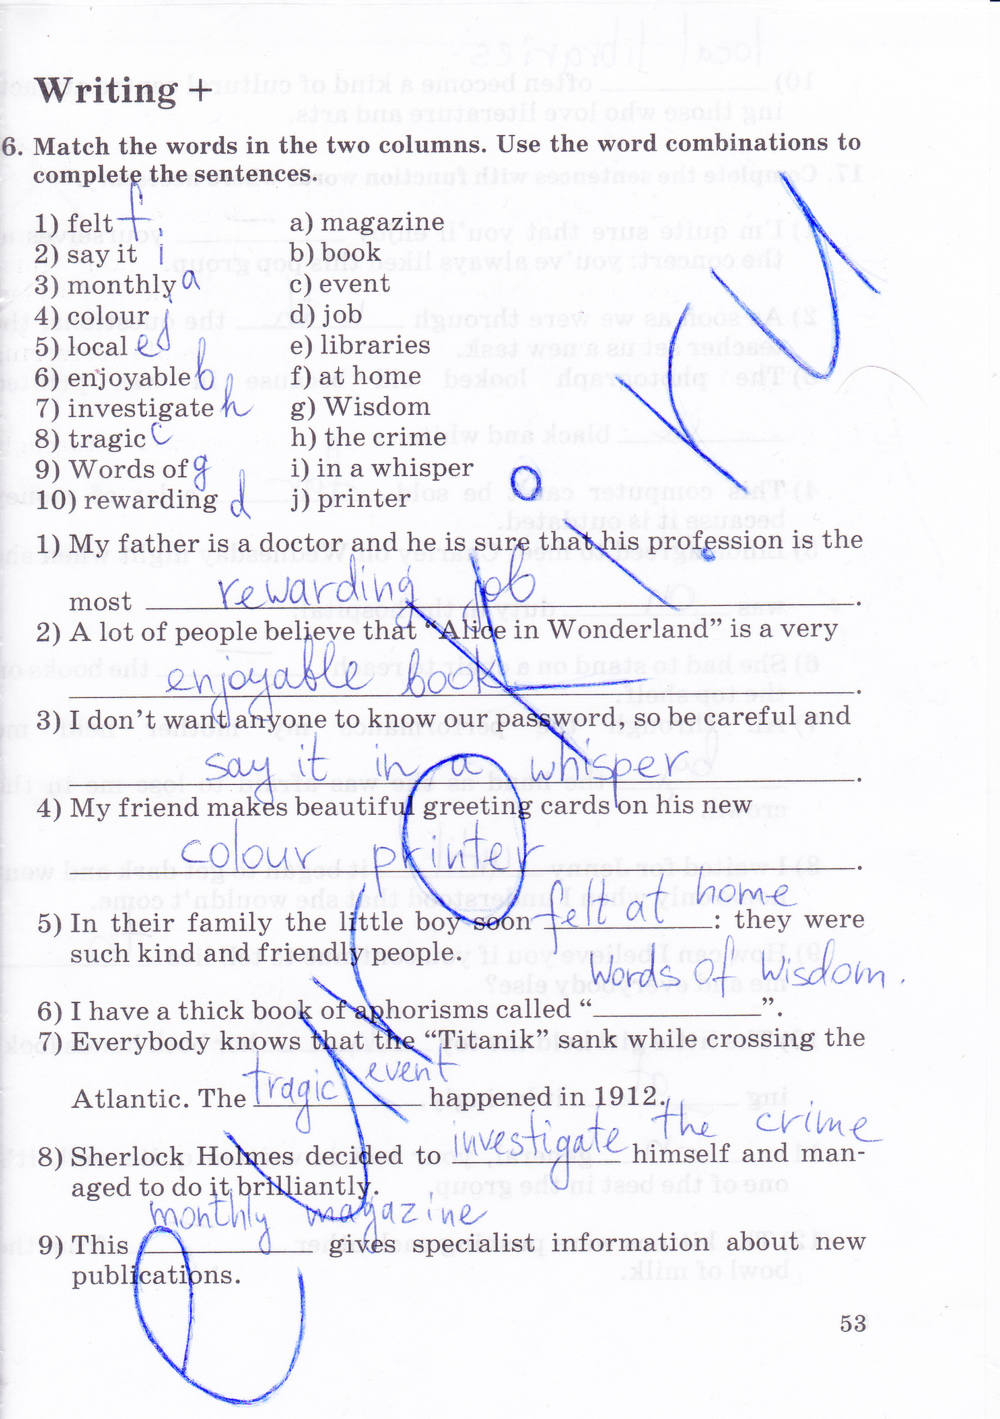 Writing +
6. Match the words in the two columns. Use the word combinations to
complete the sentences.
1) felt f a) magazine
2) say it i b) book
3) monthly a c) event
4) colour j d) job
5) local e e) libraries
6) enjoyable b f) at home
7) investigate h g) Wisdom
8) tragic c h) the crime
9) Words of g i) in a whisper
10) rewarding d j) printer
1) My father is a doctor and he is sure that his profession is the
most rewarding job.
2) A lot of people believe that “Alice in Wonderland” is a very
enjoyable book.
3) I don’t want anyone to know our password, so be careful and
say it in a whisper.
4) My friend makes beautiful greeting cards on his new
colour printer.
5) In their family the little boy soon felt at home: they were
such kind and friendly people.
words of wisdom.
6) I have a thick book of aphorisms called “____”.
7) Everybody knows that the “Titanik” sank while crossing the
Atlantic. The tragic event happened in 1912.
8) Sherlock Holmes decided to investigate the crime himself and man-
aged to do it brilliantly.
monthly magazine
9) This ____ gives specialist information about new
publications.
53